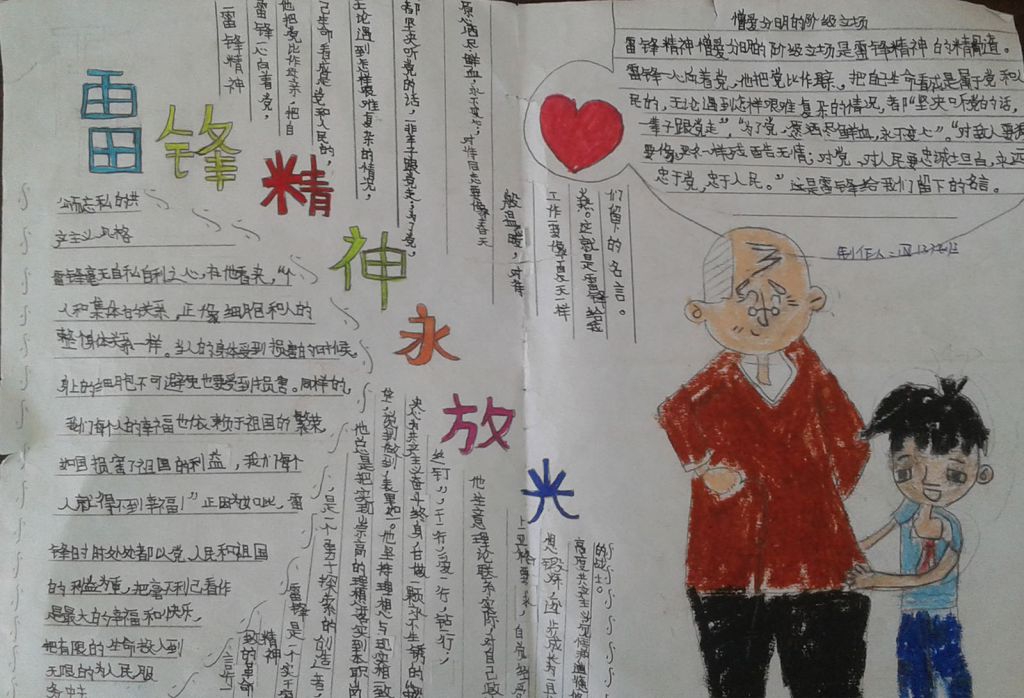 雷锋精神永放光
憎爱分明的阶级立场
雷锋精神憎爱分明的阶级立场是雷锋精神的精髓。
雷锋一心向着党，他把党比作母亲，把自己生命看成是属于党和人
民的，无论遇到怎样艰难复杂的情况，都"坚决听党的话，
一辈子跟党走"，"为了党，愿洒尽鲜血，永不变心"。"对敌人要
要像 一样残酷无情；对党、对人民要忠诚 永远
忠于党，忠于人民。"这是雷锋给我们留下的名言。
制作人：
雷锋精神
雷锋一心向着党，
他把党比作母亲，把自
己生命看成是党和人民的，
无论遇到怎样艰难复杂的情况，
都坚决听党的话，一辈子跟党走，为了党，
愿洒尽鲜血，永不变心，对待同志要像春天
般温暖，对待
工作要像夏天一样
这就是雷锋给我
们留下的名言。
无私的共
产主义风格
雷锋毫无自私自利之心，在他看来，"个
人和集体的关系，正像细胞和人的
整个身体关系一样。当人的身体受到损害的时候，
身上的细胞不可避免也要受到损害。同样的，
我们每个人的幸福也依赖于祖国的繁荣，
如果损害了祖国的利益，我们每个
人就得不到幸福！"正因为如此，雷
锋时时处处都以党、人民和祖国
的利益为重，把毫不利己看作
是最大的幸福和快乐，
把有限的生命投入到
无限的为人民服
务中去
言行一
致的革命
精神
雷锋是一个实干
家，是一个勇于探索的创造者，
他总是把实现崇高的理想落实到本职岗
说到做到，表里如一。他坚持理想与现实相一致
决心为共产主义奋斗终身，甘做一颗永不生锈的螺
丝钉"，"干一行，爱一行，钻一行。"
他注意理论联系实际，对自己
严格要求，自觉
锻炼，逐步成长为具
高度共产主义精神
的战士。